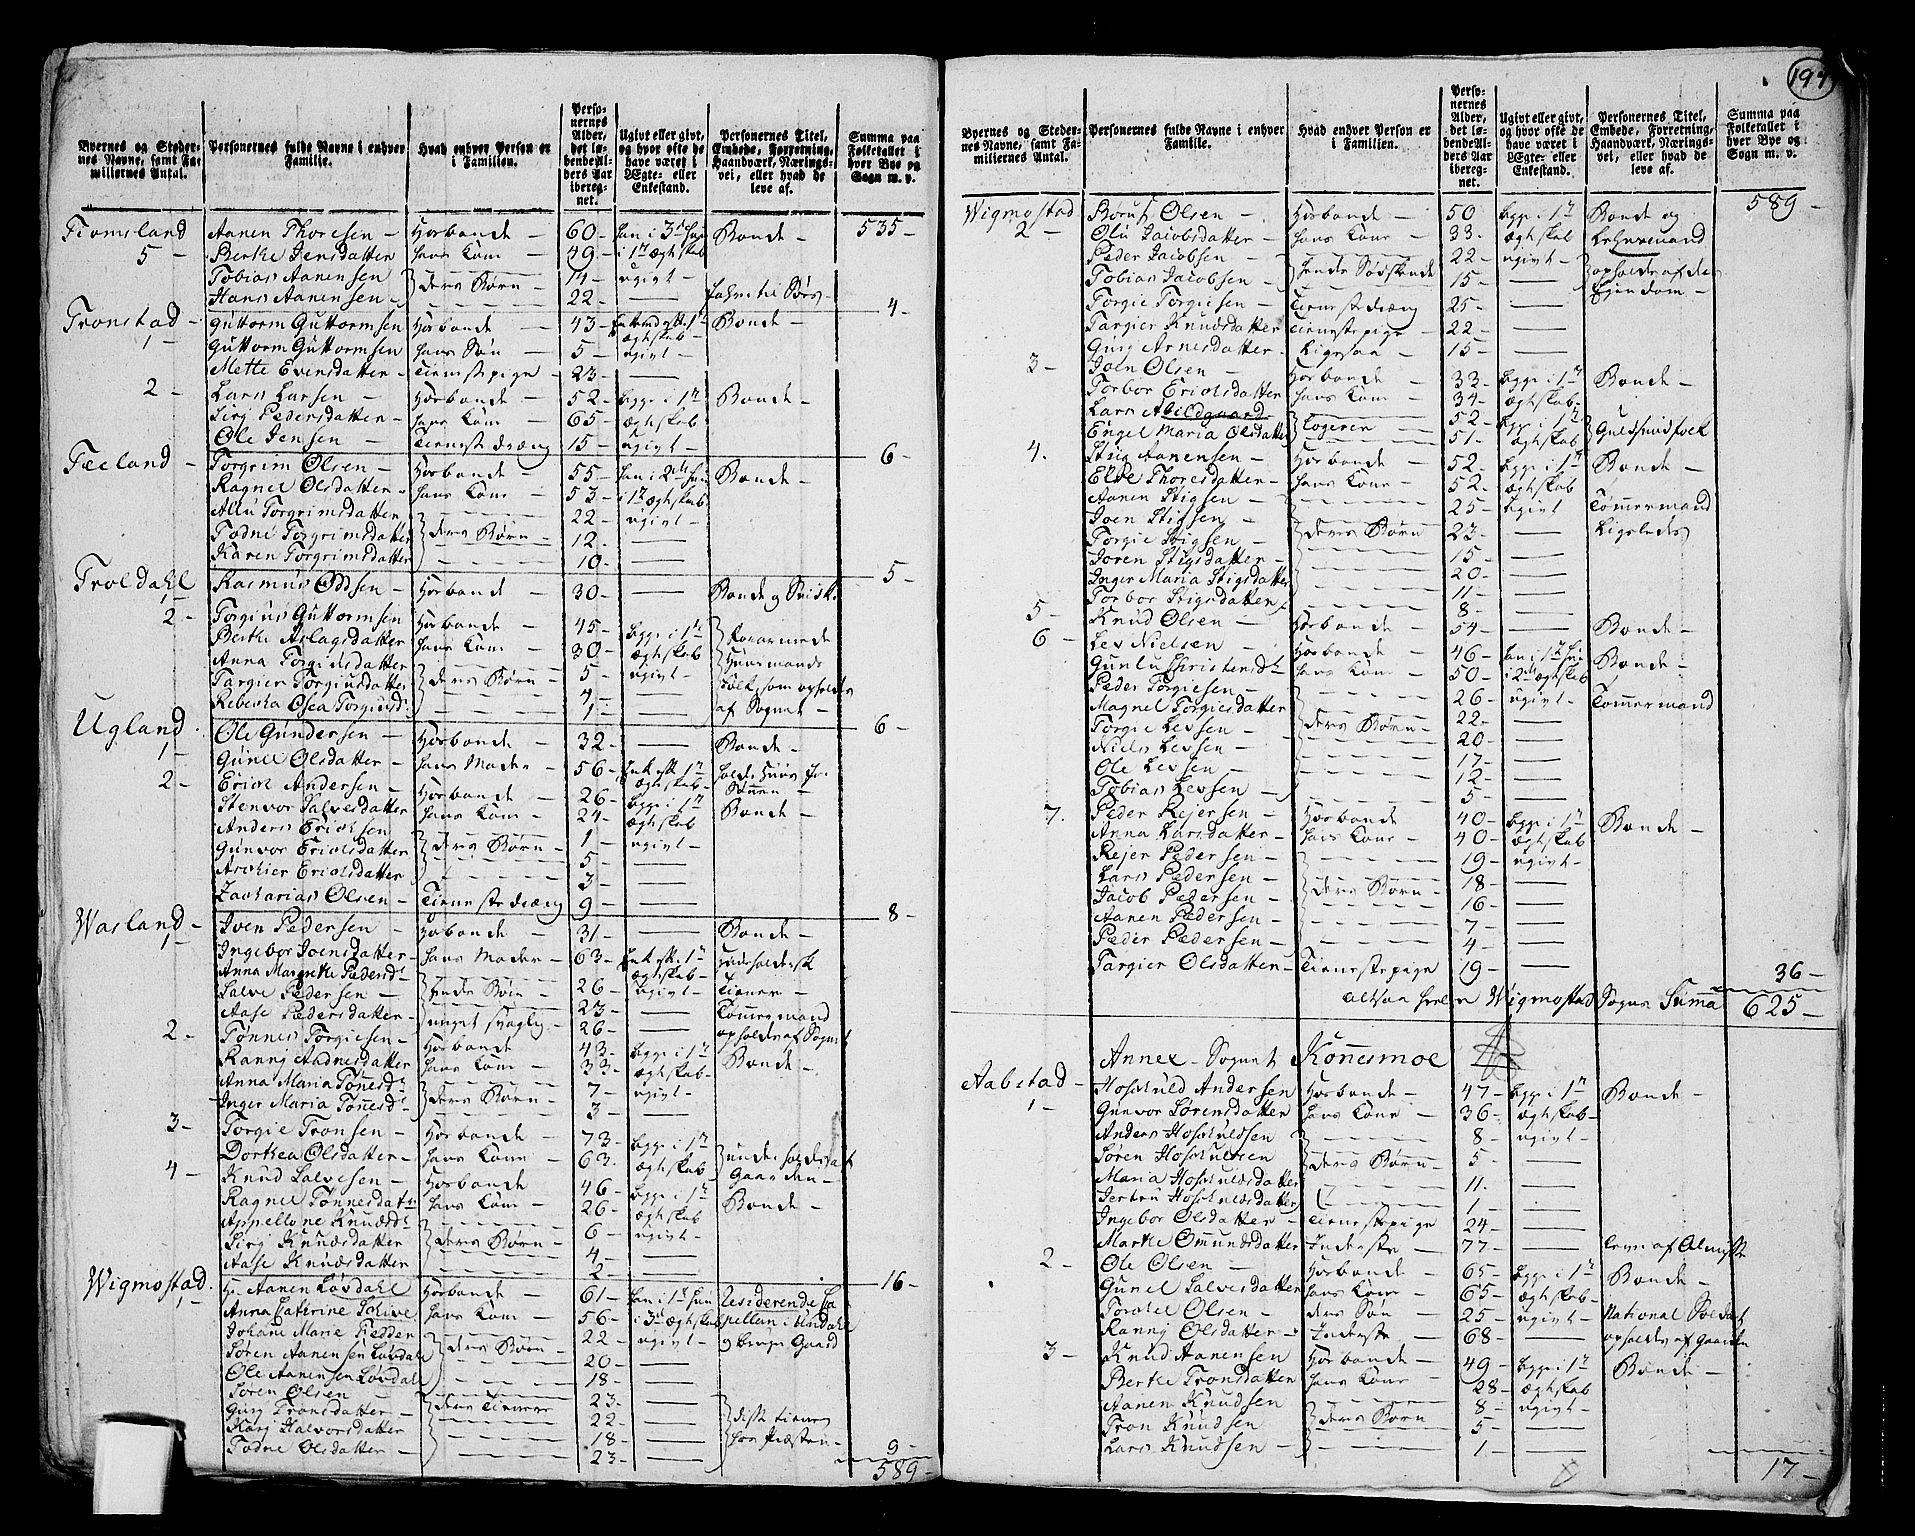 194
Byernes og Stedernes Navne, samt Familiernes Antal. | Personernes fulde Navne i enhver Familie. | Hvad enhver Person er i Familien. | Personernes Alder, det løbende Alders Aar iberegnet. | Ugivt eller givt, og hvor ofte de have været i Ægte- eller Enkestand. | Personernes Titel, Embede, Forretning, Haandværk, Næringsvei, eller hvad de leve af. | Summa paa Folketallet i hver Bye og Sogn m. v.
Fiomsland 5 – Aanen Thoresen – Hosbonde – 60 – han i 3d hun Bonde – 535 –
Berthe Jensdatter hans Kone – 49 – i 1t ægteskab
Tobias Aanensen deres Børn – 14 – ugivt –
Hans Aanensen – 22 –
4 –
Tronstad 1 – Guttorm Guttormsen Hosbonde – 43 – 1t Bonde –
ægteskab
Guttorm Guttormsen hans Søn – 5 – ugivt –
Mette Evensdatter – Tienestepige – 23 –
2 – Lars Larsen – Hosbonde – 52 – begge i 1t Bonde –
Siri Pedersdatter – hans Kone – 65 – ægteskab
Ole Jensen – Tienestedreng 15 – ugivt –
6 –
Teeland – Torgrim Olsen – Hosbonde – 55 – han i 2den hun Bonde –
Ragnel Olsdatter – hans Kone – 53 – i 1t ægteskab
Allu Torgrimsdatter 22 – ugivt –
Todne Torgrimsdatter deres Børn – 12 –
Karen Torgrimsdatter 10 –
5 –
Troldahl 1 – Rasmus Oddsen – Hosbonde – 30 – Bonde og
2 – Torgius Guttormsen Hosbonde – 45 – begge i 1t
Berthe Aslagsdatter hans Kone – 30 – ægteskab Huusmands
Anna Torgiusdatter 5 – ugivt – folk som opholdes
Targier Torgiusdatter deres Børn – 4 – af Sognet –
Rebecka Osea Torgiusd. 1 –
6 –
Ugland 1 – Ole Gundersen – Hosbonde – 32 – Bonde –
Gunel Olsdatter – hans Moder – 56 – Enke efter 1t
ægteskab
2 – Erick Andersen – Hosbonde – 26 – begge i 1t
Stenvor Salvesdatter hans Kone – 24 – ægteskab Bonde –
Anders Ericksen 1 – ugivt –
Gunvor Ericksdatter deres Børn – 5 –
Ericksdatter 3 –
Zacharias Olsen – Tienestedreng 9 –
8 –
Wasland 1 – Iven Pedersen – Hosbonde – 31 – Bonde –
Ingebor Joensdatter – hans Moder – 63 – Enke efter 1t
Anna Margrethe Pedersd. ægteskab
Salve Pedersen – hendes Børn – 26 – ugivt – Tiener –
Aase Pedersdatter – 23 – Tømmermand
meget svaglig – 26 – opholdes af Sognet
2 – Tønnes Torgiesen – Hosbonde – 43 – begge i 1t Bonde –
Ranny Aadnesdatter hans Kone – 33 – ægteskab
Anna Maria Tønnesd. 7 – ugivt –
Inger Maria Tønnesd. – deres Børn – 3 –
3 – Torgie Tronsen – Hosbonde – 73 – begge i 1t
Dorthea Olsdatter – hans Kone – 63 – ægteskab Gaarden –
4 – Knud Salvesen – Hosbonde 46 – begge i 1t
Ragnel Tønnesdatter hans Kone – 26 – ægteskab Bonde –
Appellone Knudsd. 6 – ugivt –
Siri Knudsdatter deres Børn – 4 –
Aase Knudsdatter 2 –
16 –
Wigmostad 1 – Hr. Aanen Løvdahl Hosbonde – 61 – han i 1t hun Residerende Ca
Anna Catrine Schive hans Kone – 56 – i 3d ægteskab pellan i Undahl
Johane Marie Fedder 22 – ugivt – og bruger Gaard
Søren Aanensen Løvdahl deres Børn – 20 –
Ole Aanensen Løvdahl 18 –
Søren Olsen – 23 –
Guri Tronsdatter – deres Tienere 22 – disse tienes
Kari Halvorsdatter 18 – hos Præsten –
Todne Olsdatter – 23 –
9 –
589 –
Byernes og Stedernes Navne, samt Familiernes Antal. | Personernes fulde Navne i enhver Familie. | Hvad enhver Person er i Familien. | Personernes Alder, det løbende Alders Aar iberegnet. | Ugivt eller givt, og hvor ofte de have været i Ægte- eller Enkestand. | Personernes Titel, Embede, Forretning, Haandværk, Næringsvei, eller hvad de leve af. | Summa paa Folketallet i hver Bye og Sogn m. v.
Wigmostad 2 – Olsen – Hosbonde – 50 begge i 1t Bonde og 589 –
Olu Jacobsdatter – hans Kone – 33 – ægteskab Lehnsmand
Peder Jacobsen 22 – ugivt – opholdes af deres
Tobias Jacobsen – hendes Sødskende 15 – Eiendom –
Torgie Torgiesen – Tienestedreng 25 –
Targier Knudsdatter Tienestepige – 22 –
Guri Arnesdatter – Ligesaa – 15 –
3 – Joen Olsen – Hosbonde – 33 – begge i 1t Bonde –
Torbor Ericksdatter hans Kone – 34 – ægteskab
Lars Abildgaard 52 – begge i 1t Guldsmedfolk
Engel Maria Olsdatter Logerer – 51 – ægteskab
4. Stig Aanensen – Hosbonde – 52 – begge i 1t Bonde –
Thoresdatter – hans Kone – 52 – ægteskab
Aanen Stigsen – 25 – ugivt Tømmermand
Joen Stigsen – deres Børn 23 – Ligeledes
Torgie Stigsen – 15 –
Joren Stigsdatter – 20 –
Inger Maria Stigsdatter 11 –
Torbor Stigsdatter 8 –
5 – Knud Olsen – Hosbonde – 54 – Bonde –
6 – Lev Nielsen – Hosbonde – 46 – han i 1t hun Bonde –
Gunlu Christensd. hans Kone – 50 – i 2d ægteskab
Peder Torgiesen – 26 – ugivt – Tømmermand
Magnel Torgiesdatter 22 –
Torgie Levsen – deres Børn – 20 –
Niels Levsen – 17 –
Ole Levsen – 12 –
Tobias Levsen – 5 –
7. Peder Rejersen – Hosbonde 40 – begge i 1t Bonde –
Anna Larsdatter – hans Kone – 40 – ægteskab
Rejer Pedersen – 19 – ugivt –
Lars Pedersen – 18 –
Jacob Pedersen – deres Børn – 16 –
Aanen Pedersen – 7 –
Peder Pedersen – 4 –
Targier Olsdatter – Tienestepige 19 –
36 –
altsaa heele Wigmostad Sogns Suma 625 –
Annex – Sognet Konnesmoe
Aabstad – 1 – Hoskuld Andersen Hosbonde – 47 – begge i 1t Bonde –
Gunvor Sørensdatter hans Kone – 36 – ægteskab –
Anders Hoskuldsen 8 – ugivt –
Søren Hoskuldsen deres Børn – 5 –
Maria Hoskuldsdatter 11 –
Jertru Hoskuldsdatter 1 –
Ingebor Olsdatter – Tienestepige 24 –
Marthe Omundsdatter Inderste – 77 – lever af Almisse
2 – Ole Olsen – Hosbonde – 65 – begge i 1t Bonde –
Gunel Salvesdatter hans Kone – 65 – ægteskab
Torkel Olsen – deres Søn – 25 – ugivt – National Soldat
Ranny Olsdatter – Inderste – 68 – opholdes af Gaarden
3 – Knud Aanensen Hosbonde – 49 – begge i 1t Bonde –
Berthe Tronsdatter hans Kone – 28 – ægteskab
Aanen Knudsen 8 – ugivt –
Tron Knudsen deres Børn 5 –
Lars Knudsen – 1 –
17 –